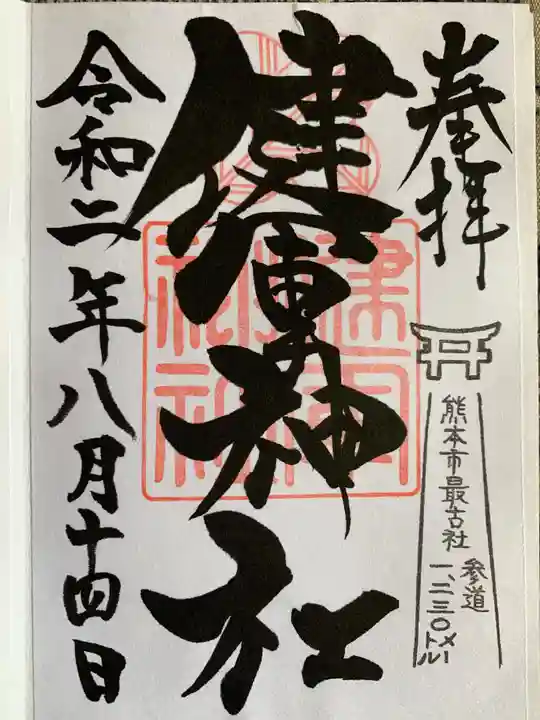 奉拝
熊本市最古社
参道
一、二三〇メートル
健軍神社
健軍
神社
令和二年八月十四日